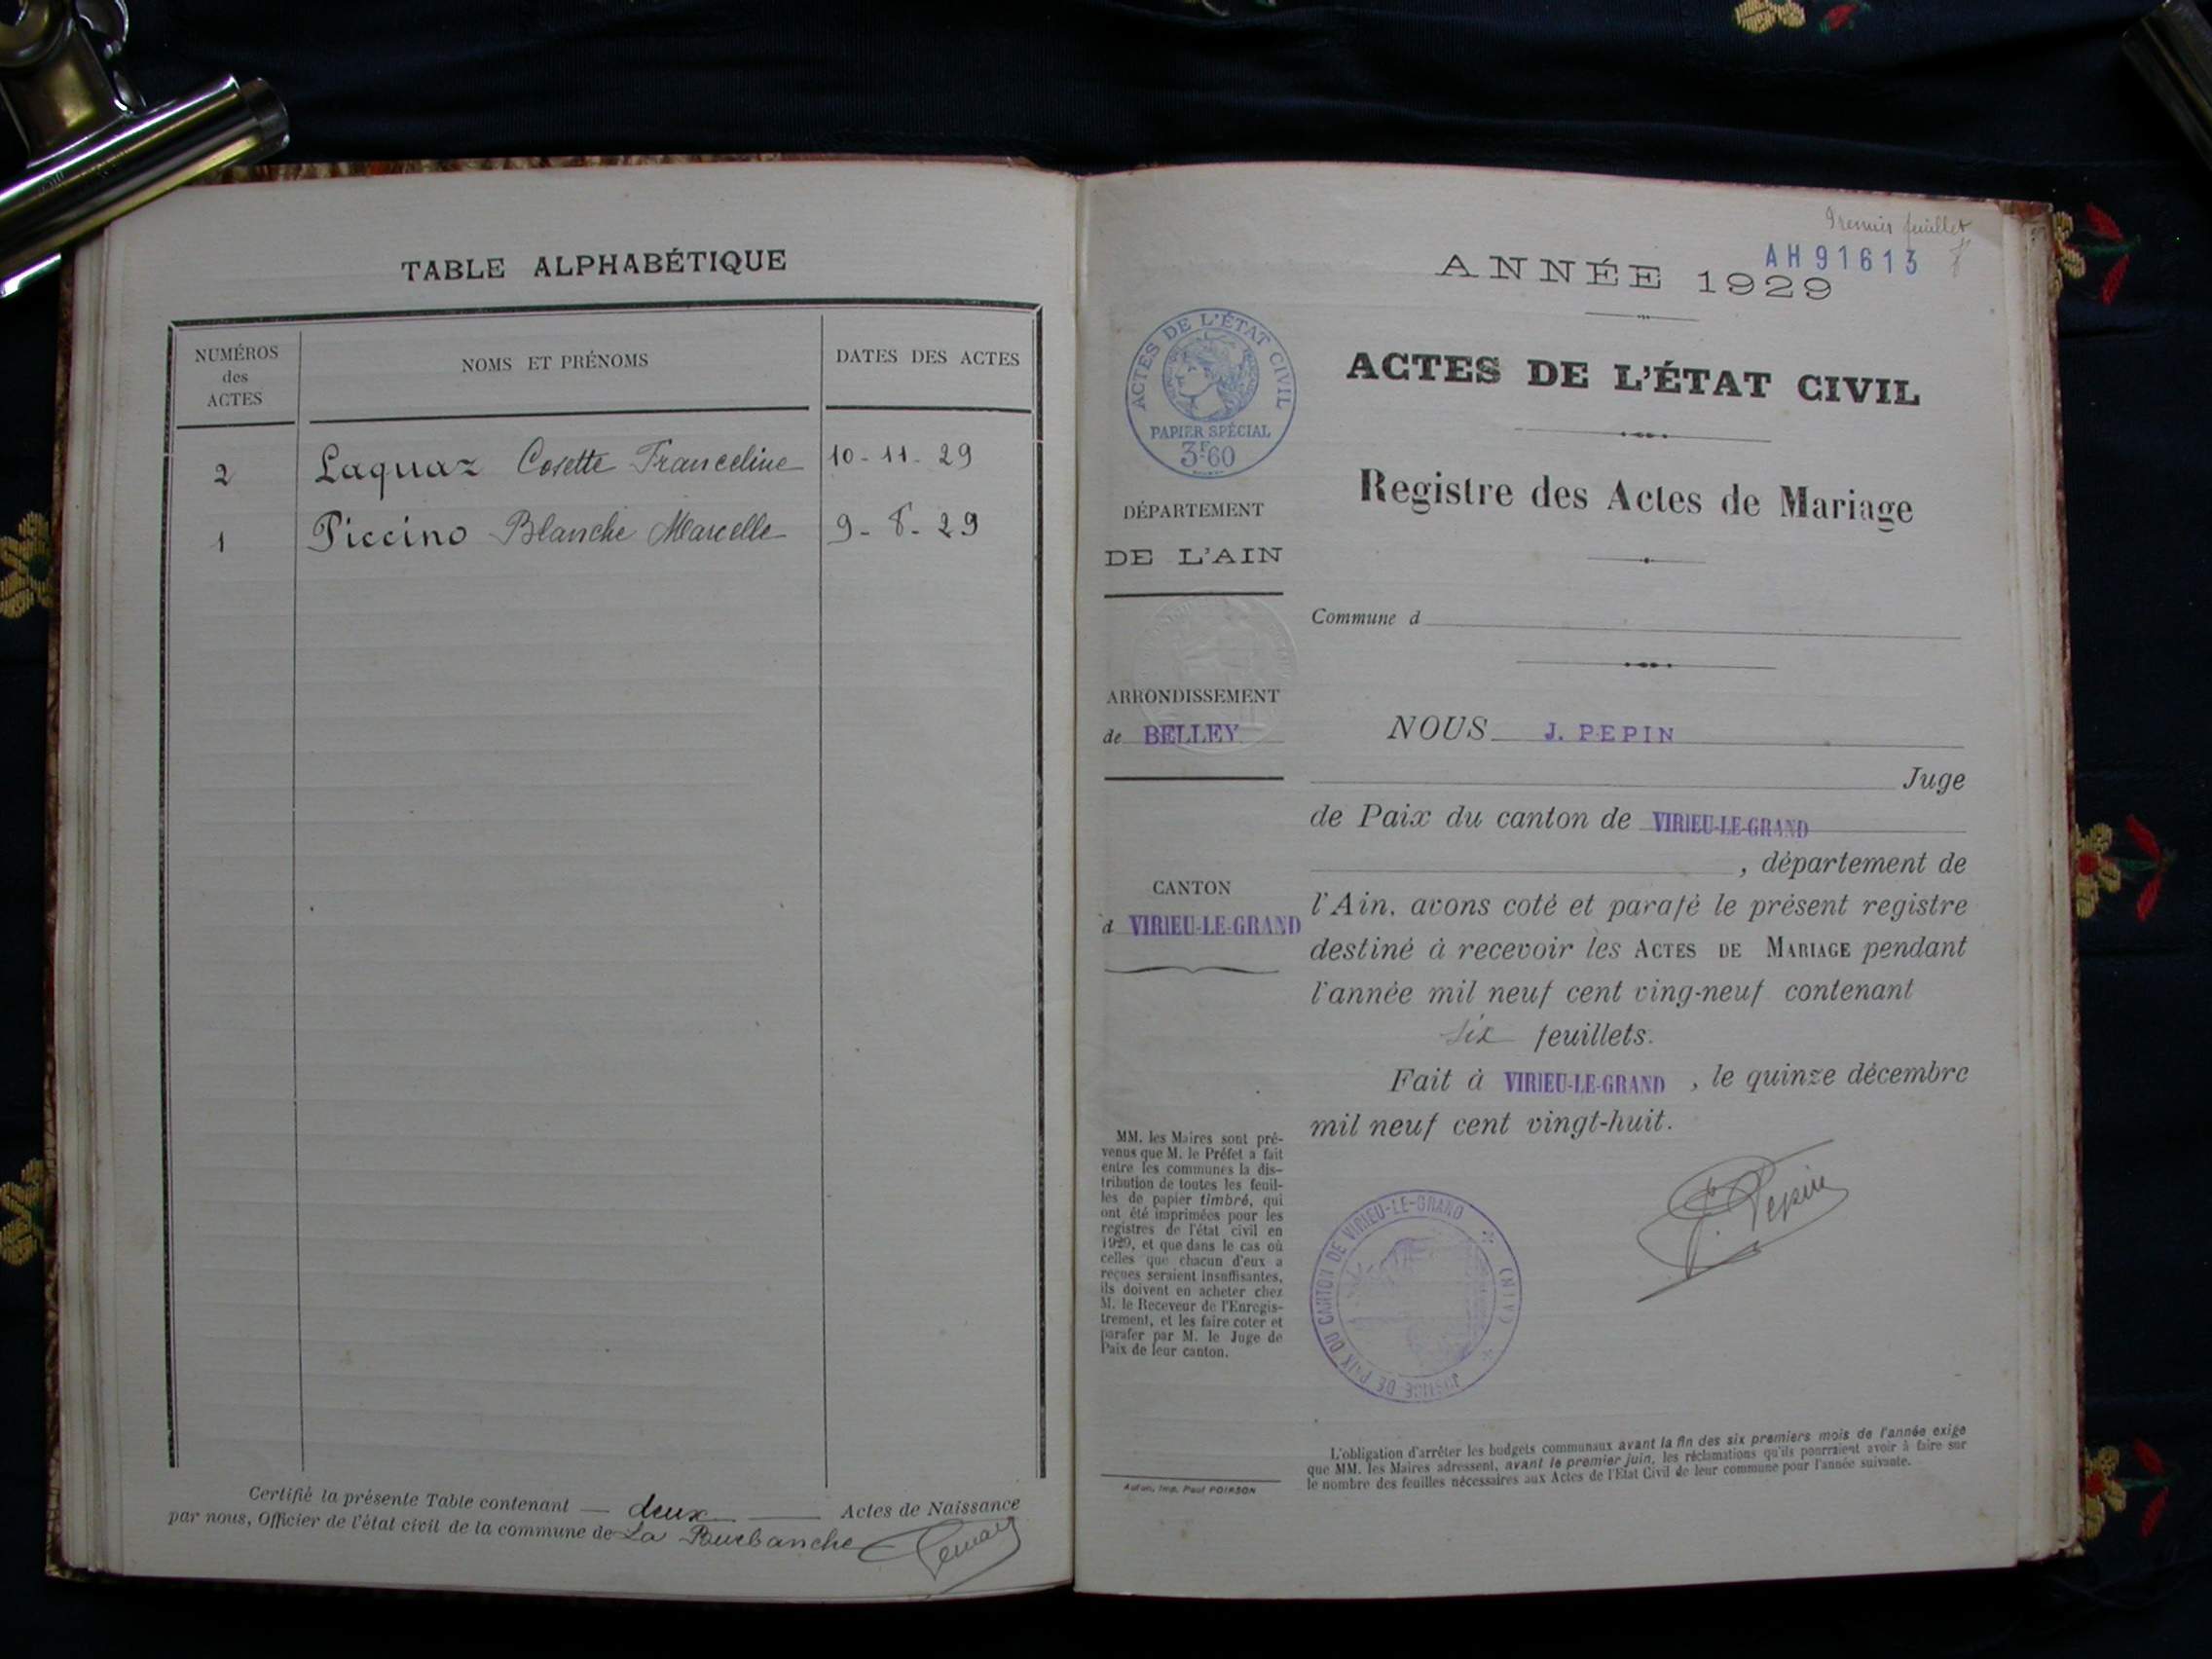 TABLE ALPHABÉTIQUE
NUMÉROS
des
ACTES
NOMS ET PRÉNOMS
DATES DES ACTES
2 Laquaz Cosette Franceline 10-11-29
1 Piccino Blanche Marcelle 9-8-29
Certifié la présente Table contenant deux Actes de Naissance
par nous, Officier de l'état civil de la commune de La Burbanche
Premier feuillet
AH 91613
ANNÉE 1929
ACTES DE L'ÉTAT CIVIL
PAPIER SPÉCIAL
3F60
ACTES DE L'ÉTAT CIVIL
Registre des Actes de Mariage
DÉPARTEMENT
DE L'AIN
ARRONDISSEMENT
de BELLEY
CANTON
d VIRIEU-LE-GRAND
MM. les Maires sont pré-
venus que M. le Préfet a fait
entre les communes la dis-
tribution de toutes les feuil-
les de papier timbré, qui
ont été imprimées pour les
registres de l'état civil en
1929, et que dans le cas où
celles que chacun d'eux a
reçues seraient insuffisantes,
ils doivent en acheter chez
M. le Receveur de l'Enregis-
trement, et les faire coter et
parafer par M. le Juge de
Paix de leur canton.
Commune d
NOUS J. PEPIN
Juge
de Paix du canton de VIRIEU-LE-GRAND
, département de
l'Ain, avons coté et parafé le présent registre
destiné à recevoir les ACTES DE MARIAGE pendant
l'année mil neuf cent ving-neuf contenant
six feuillets.
Fait à VIRIEU-LE-GRAND , le quinze décembre
mil neuf cent vingt-huit.
J. Pepin
JUSTICE DE PAIX DU CANTON DE VIRIEU-LE-GRAND * (AIN) *
L'obligation d'arrêter les budgets communaux avant la fin des six premiers mois de l'année exige
que MM. les Maires adressent, avant le premier juin, les réclamations qu'ils pourraient avoir à faire sur
le nombre des feuilles nécessaires aux Actes de l'Etat Civil de leur commune pour l'année suivante.
Imp. Paul POIRSON